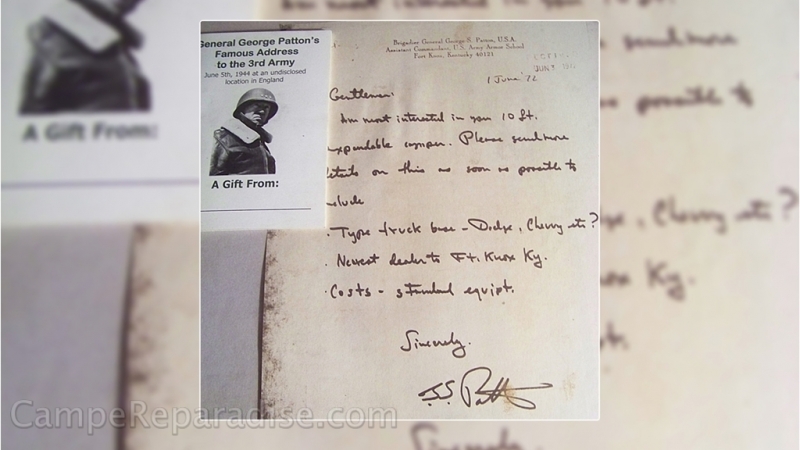 General George Patton's
Famous Address
to the 3rd Army
June 5th, 1944 at an undisclosed
location in England
A Gift From:
Brigadier General George S. Patton, U.S.A.
Assistant Commandant, U.S. Army Armor School
Fort Knox, Kentucky 40121
1 June '72
Gentlemen:
Am most interested in your 10 ft.
expandable camper. Please send more
details on this as soon as possible to
include
. Type truck base - Dodge, Chevy etc?
. Nearest dealer to Ft. Knox Ky.
. Costs - standard equipt.
Sincerely,
G.S. Patton
CampeReparadise.com